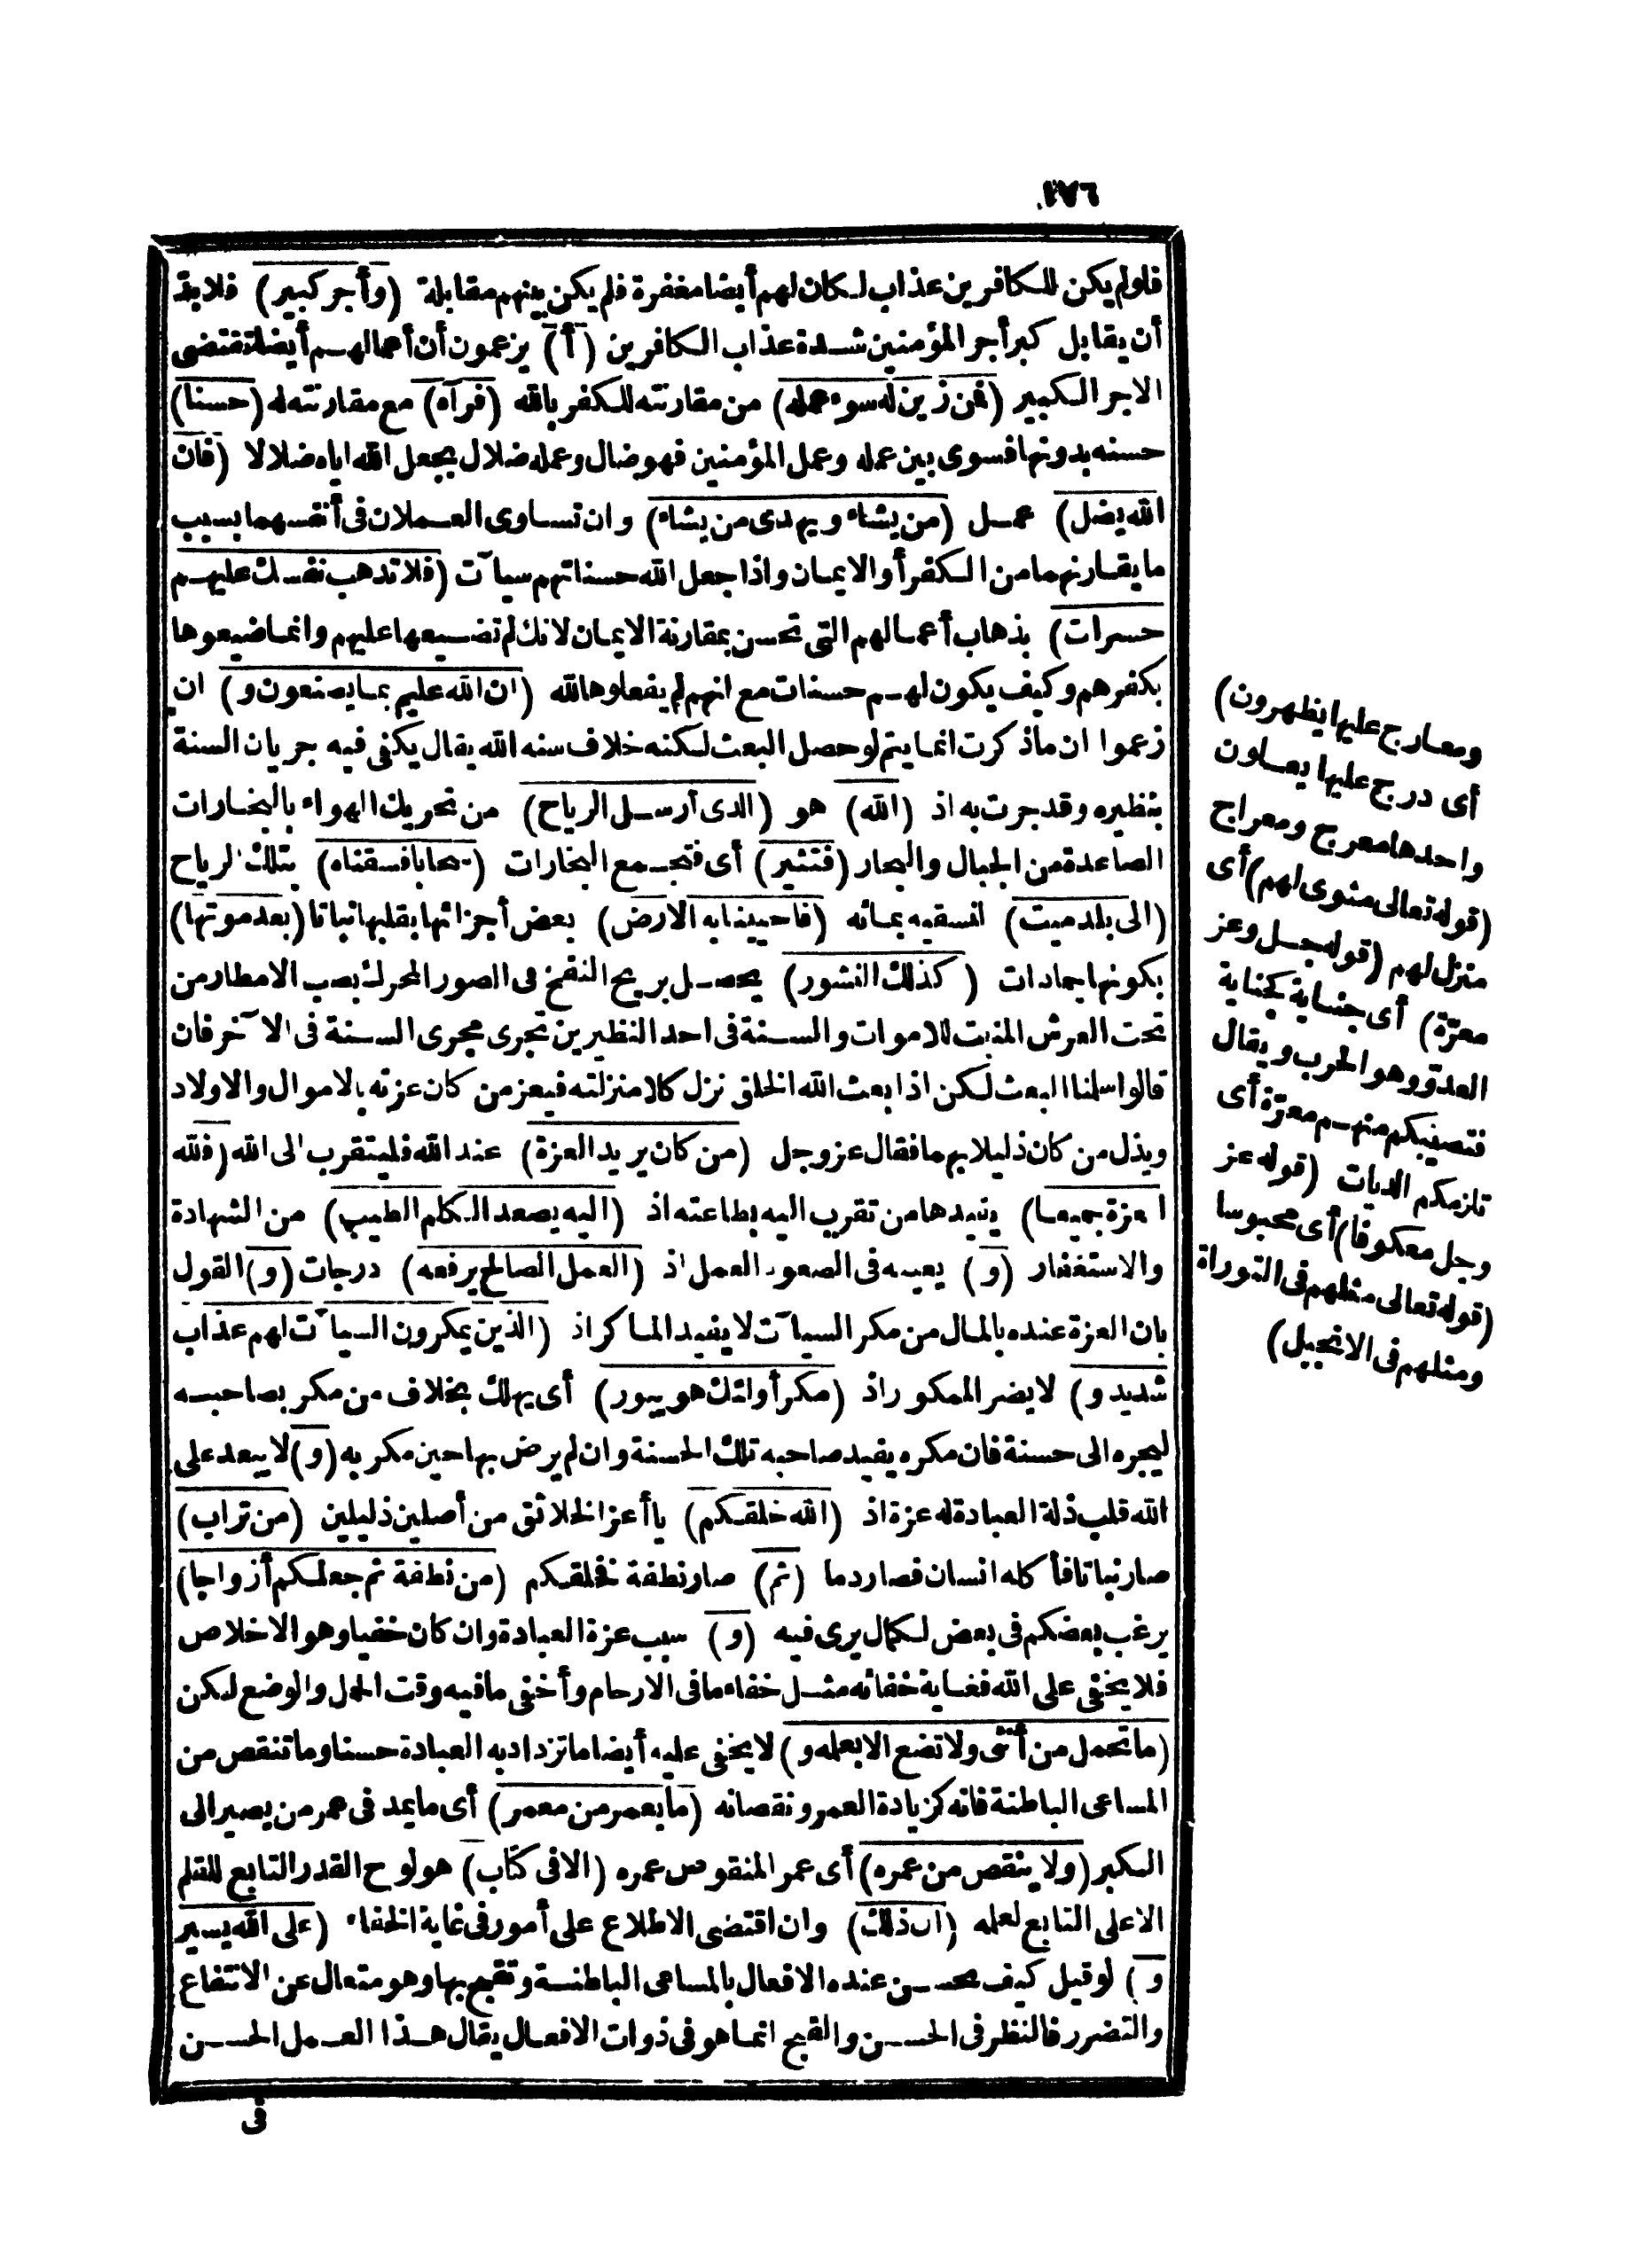 ١٧٦
فلولم يكن للكافرين عذاب لكان لهم أيضا مغفرة فلم يكن بينهم مقابلة (وأجر كبير) فلا بد
أن يقابل كبر أجر المؤمنين شدة عذاب الكافرين (أ) يزعمون أن أعمالهم أيضا تقتضى
الاجر الكبير (فمن زين له سوء عمله) من مقارنته للكفر بالله (فرآه) مع مقارنته له (حسنا)
حسنه بدونها فسوى بين عمله وعمل المؤمنين فهو ضال وعمله ضلال بجعل الله اياه ضلالا (فان
الله يضل) عمل (من يشاء ويهدى من يشاء) وان تساوى العملان فى أنفسهما بسبب
ما يقارنهما من الكفر أو الايمان واذا جعل الله حسناتهم سيآت (فلا تذهب نفسك عليهم
حسرات) بذهاب أعمالهم التى تحسن بمقارنة الايمان لانك لم تضيعها عليهم وانما ضيعوها
بكفرهم وكيف يكون لهم حسنات مع انهم لم يفعلوها لله (ان الله عليم بما يصنعون و) ان
زعموا ان ماذكرت انما يتم لو حصل البعث لكنه خلاف سنه الله يقال يكفى فيه جريان السنة
بنظيره وقد جرت به اذ (الله) هو (الذى أرسل الرياح) من تحريك الهواء بالبخارات
الصاعدة من الجبال والبحار (فتثير) أى فتجمع البخارات (سحابا فسقناه) بتلك الرياح
(الى بلد ميت) لنسقيه بمائه (فاحيينا به الارض) بعض أجزائها بقلبها نباتا (بعد موتها)
بكونها جمادات (كذلك النشور) يحصل بريح النفخ فى الصور المحرك بصب الامطار من
تحت العرش المنبت للاموات والسنة فى احد النظيرين تجرى مجرى السنة فى الآخر فان
قالوا سلمنا البعث لكن اذا بعث الله الخلق نزل كلا منزلته فيعز من كان عزته بالاموال والاولاد
ويذل من كان ذليلا بهما فقال عز وجل (من كان يريد العزة) عند الله فليتقرب الى الله (فلله
العزة جميعا) يفيدها من تقرب اليه بطاعته اذ (اليه يصعد الكلم الطيب) من الشهادة
والاستغفار (و) يعينه فى الصعود العمل اذ (العمل الصالح يرفعه) درجات (و) القول
بان العزة عنده بالمال من مكر السيآت لا يفيد الماكر اذ (الذين يمكرون السيآت لهم عذاب
شديد و) لا يضر الممكور اذ (مكر أولئك هو يبور) أى يهلك بخلاف من مكر بصاحبه
ليجره الى حسنة فان مكره يفيد صاحبه تلك الحسنة وان لم يرض بها حين مكر به (و) لا يبعد على
الله قلب ذلة العبادة له عزة اذ (الله خلقكم) يا أعز الخلائق من أصلين ذليلين (من تراب)
صار نباتا فأكله انسان فصار دما (ثم) صار نطفة فخلقكم (من نطفة ثم جعلكم أزواجا)
يرغب بعضكم فى بعض لكمال يرى فيه (و) سبب عزة العبادة وان كان خفيا وهو الاخلاص
فلا يخفى على الله فغاية خفائه مثل خفاء ما فى الارحام وأخفى ما فيه وقت الحمل والوضع لكن
(ما تحمل من أنثى ولا تضع الا بعلمه و) لا يخفى عليه أيضا ما تزداد به العبادة حسنا وما تنقص من
المساعى الباطنة فانه كزيادة العمر ونقصانه (ما يعمر من معمر) أى ما يمد فى عمر من يصير الى
الكبر (ولا ينقص من عمره) أى عمر المنقوص عمره (الا فى كتاب) هو لوح القدر التابع للقلم
الاعلى التابع لعلمه (ان ذلك) وان اقتضى الاطلاع على أمور فى غاية الخفاء (على الله يسير
و) لو قيل كيف تحسن عنده الافعال بالمساعى الباطنة وتقبح بها وهو متعال عن الانتفاع
والتضرر فالنظر فى الحسن والقبح انما هو فى ذوات الافعال يقال هذا العمل الحسن
فى
ومعارج عليها يظهرون)
أى درج عليها يعلون
واحدها معرج ومعراج
(قوله تعالى مثوى لهم) أى
منزل لهم (قوله جل وعز
معرّة) أى جناية كجناية
العدوّ وهو الحرب ويقال
فتصيبكم منهم معرّة أى
تلزمكم الديات (قوله عز
وجل معكوفا) أى محبوسا
(قوله تعالى مثلهم فى التوراة
ومثلهم فى الانجيل)